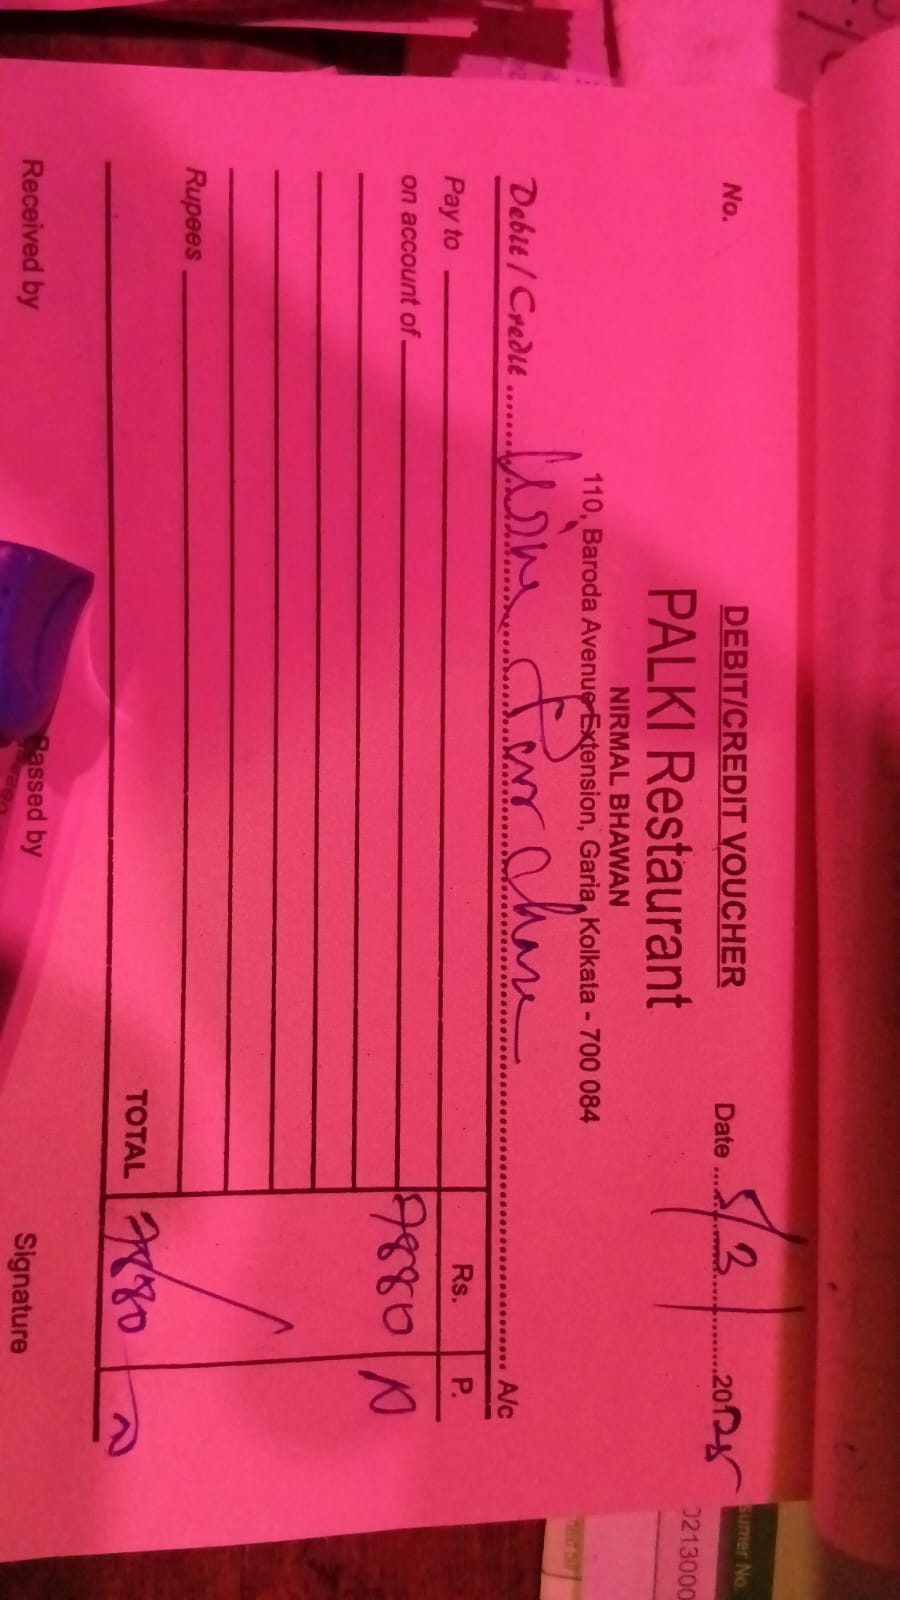 No.
DEBIT/CREDIT VOUCHER
Date 5/3/2025
PALKI Restaurant
NIRMAL BHAWAN
110, Baroda Avenue Extension, Garia, Kolkata - 700 084
Debit / Credit ........ A/c
Pay to
Rs. P.
on account of
7880
Rupees
TOTAL 7880
Received by
Passed by
Signature
sumer No.
0213000